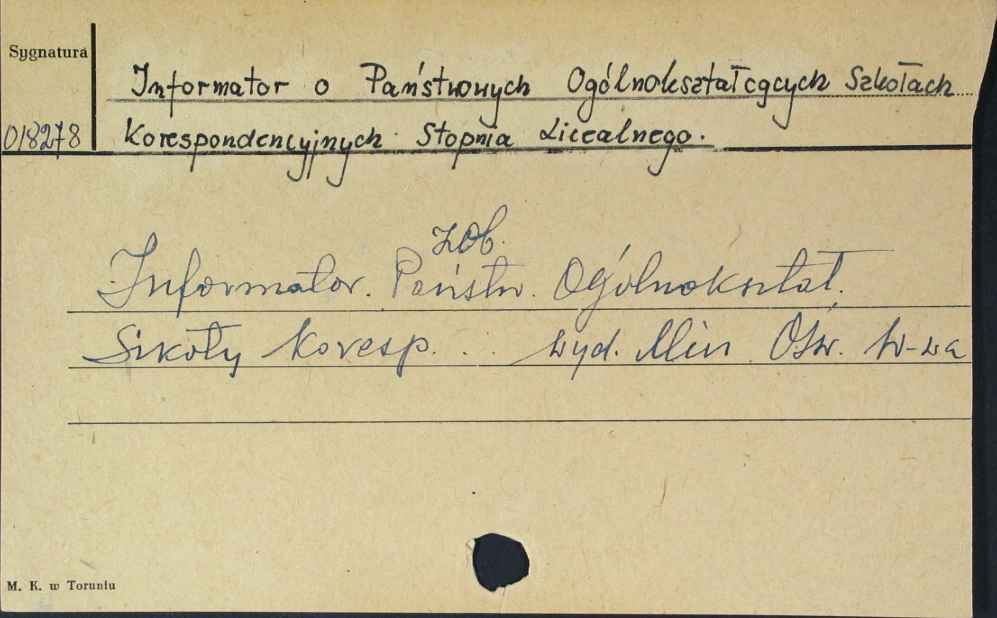 Sygnatura
Informator o Państwowych Ogólnokształcących Szkołach
018278
Korespondencyjnych Stopnia Licealnego.
zob.
Informator. Państw. Ogólnokształ.
Szkoły Koresp. ... wyd. Min Ośw. W-wa
M. K. w Toruniu